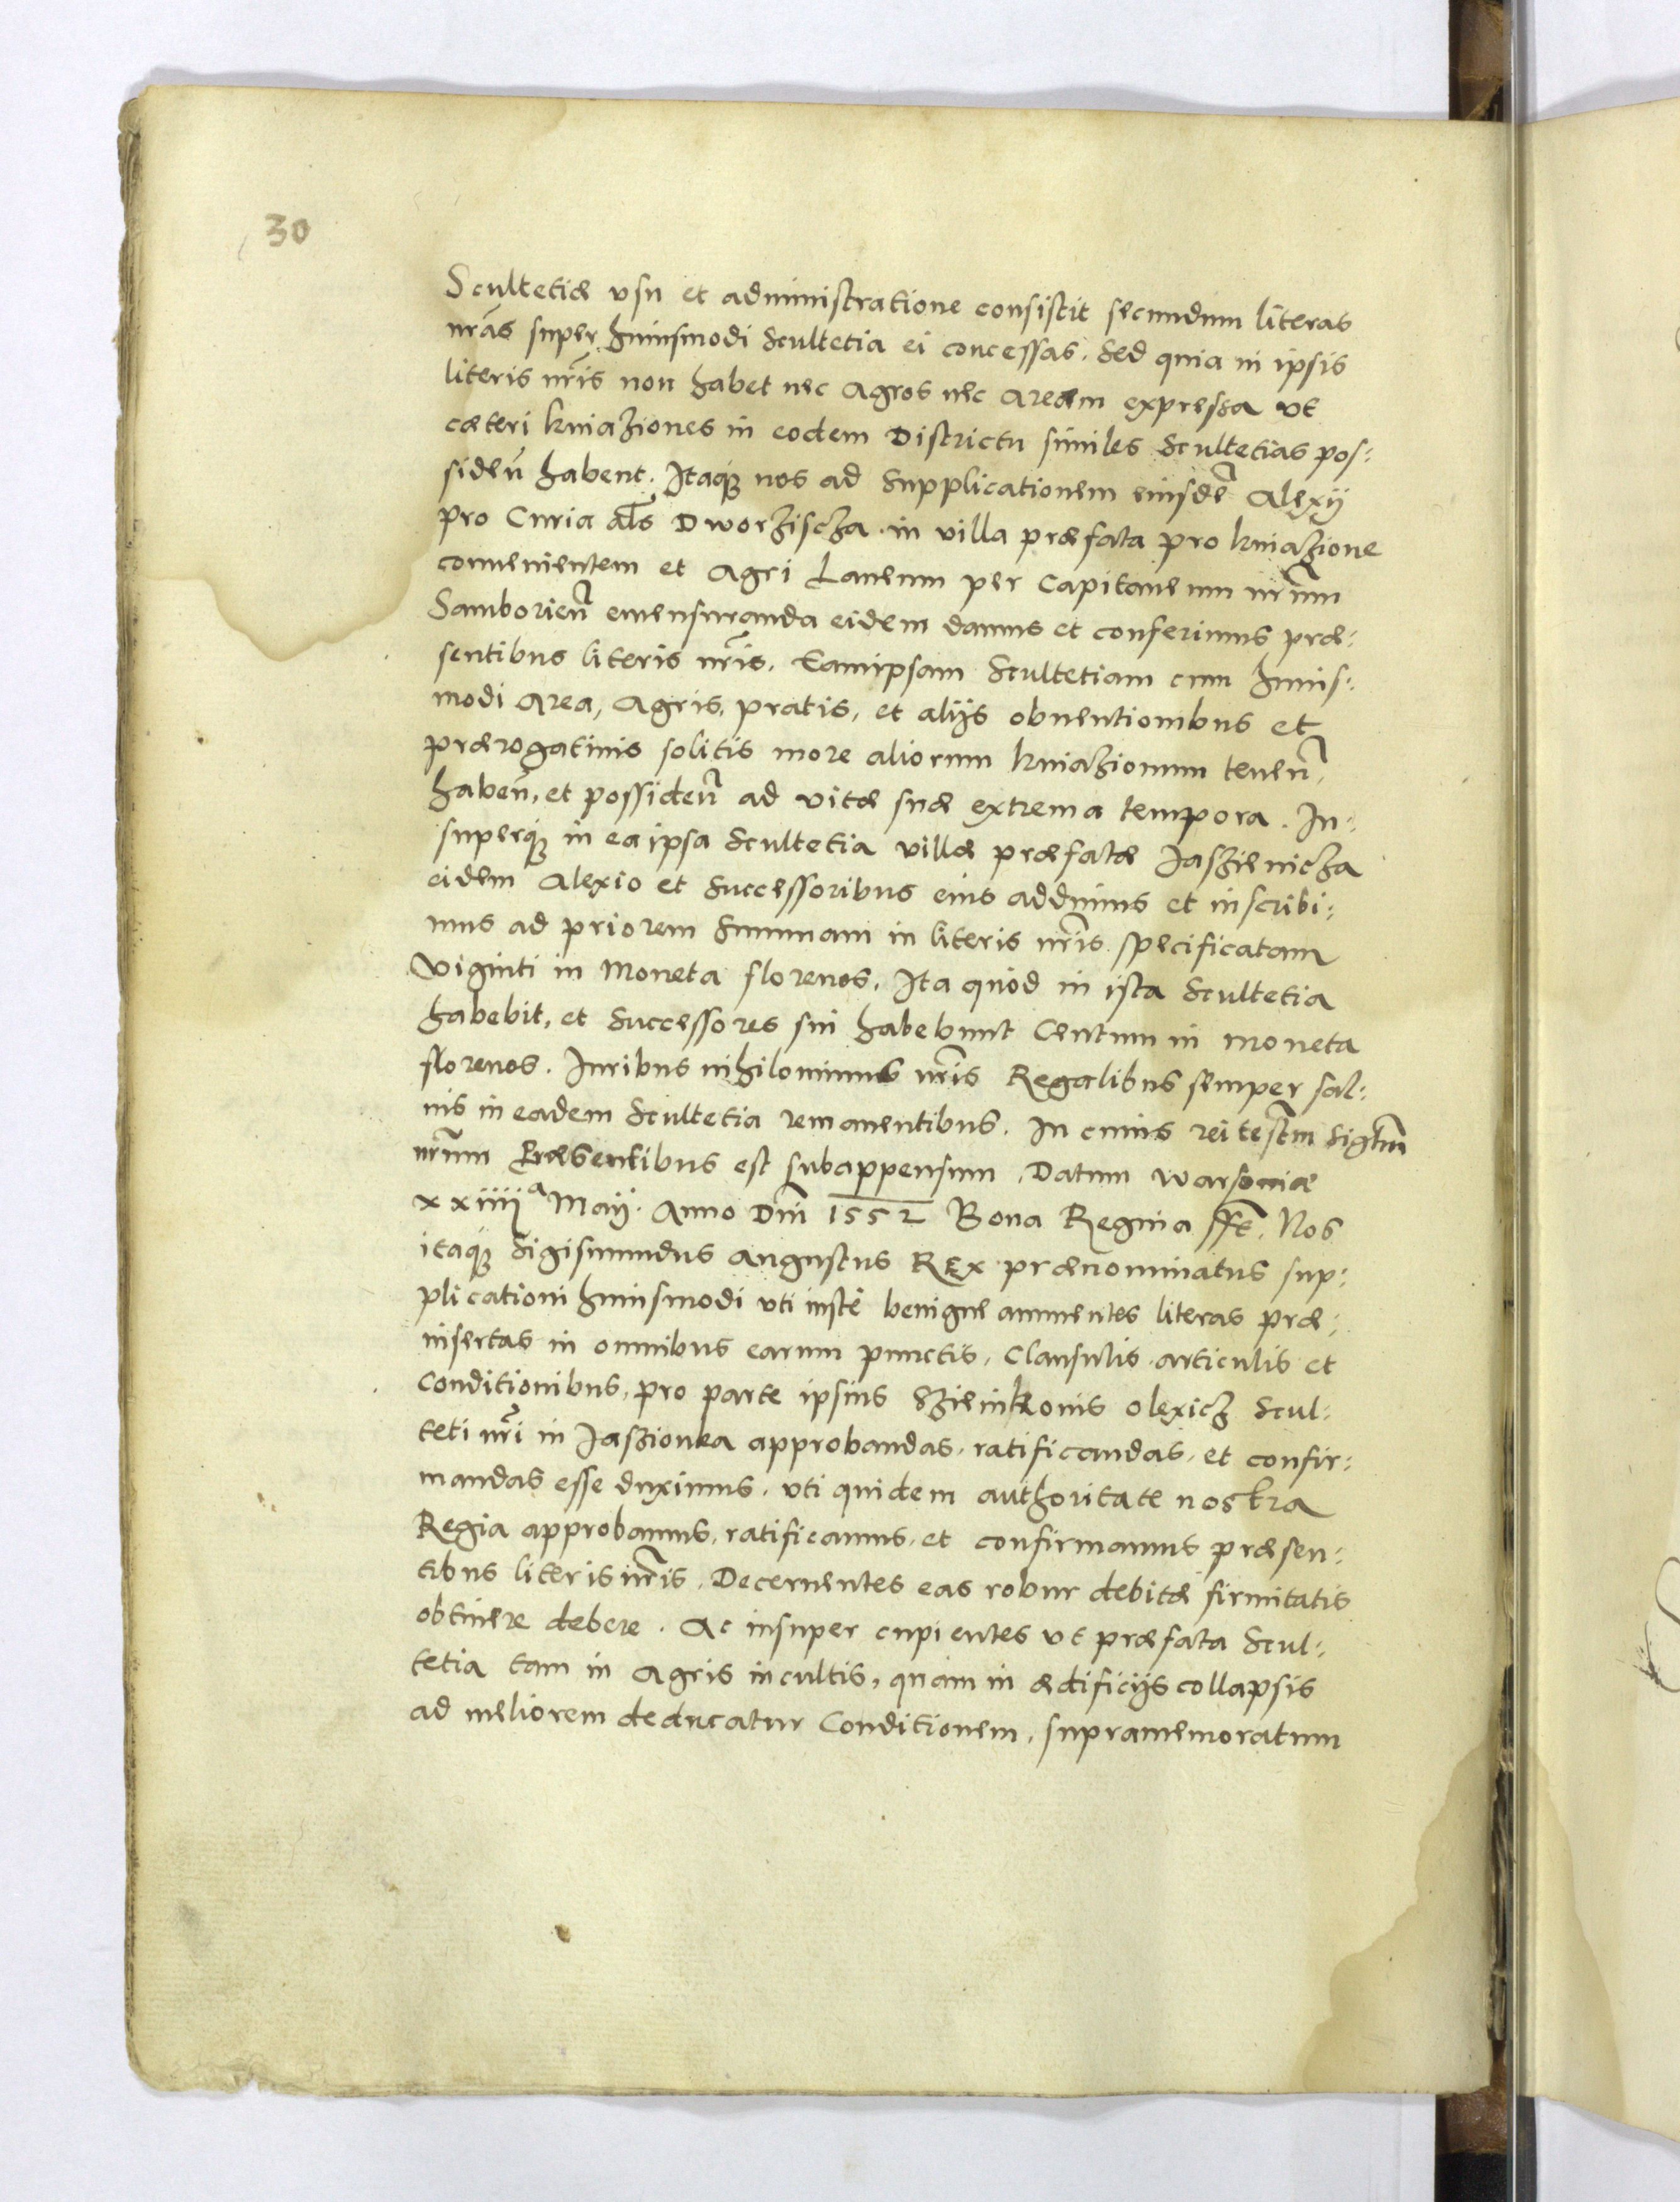 30
Scultetiæ vsu et administratione consistit secundum literas
nr̃as super huiusmodi Scultetia ei concessas. Sed quia in ipsis
literis nr̃is non habet nec Agros nec Aream expressa vt
cæteri kniaziones in eodem Districtu similes Scultetias pos⸗
siden̄ habent. Itaq; nos ad Supplicationem eiusdē Alexÿ
pro Curia al̃s Dworzisцza in villa præfata pro kniazione
conuenientem et Agri Laneum per Capitaneum nr̃um
Samborien̄ emensuranda eidem damus et conferimus præ⸗
sentibus literis nr̃is. Eamipsam Scultetiam cum huius⸗
modi Area, Agris, pratis, et alijs obuentionibus et
prærogatiuis solitis more aliorum kniazionum tenen̄,
haben̄, et possiden̄ ad vitæ suæ extrema tempora. In⸗
superq; in ea ipsa Scultetia villæ præfatæ Jaszienicza
eidem Alexio et Successoribus eius addimus et inscribi⸗
mus ad priorem Summam in literis nr̃is specificatam
Viginti in Moneta florenos. Ita quòd in ista Scultetia
habebit, et Successores sui habebunt Centum in moneta
florenos. Iuribus nihilominus nr̃is Regalibus semper sal⸗
uis in eadem Scultetia remanentibus. In cuius rei testm̄ Siglm̄
nr̃um Præsentibus est subappensum. Datum Warsouiæ
xxiiijᵃ Maÿ. Anno Dm̄ 1552 Bona Regina sst̄. Nos
itaq; Sigismundus Augustus Rex prænominatus sup⸗
plicationi huiusmodi vti iustè benigne annuentes literas præ⸗
insertas in omnibus earum punctis, Clausulis, articulis et
conditionibus, pro parte ipsius Szienkonis Olexicz Scul⸗
teti nr̃i in Jaszionka approbandas, ratificandas, et confir⸗
mandas esse duximus. vti quidem authoritate nostra
Regia approbamus, ratificamus, et confirmamus præsen⸗
tibus literis nr̃is. Decernentes eas robur debitæ firmitatis
obtinere debere. Ac insuper cupientes vt præfata Scul⸗
tetia tam in Agris incultis, quàm in ædificijs collapsis
ad meliorem deducatur Conditionem, supramemoratum